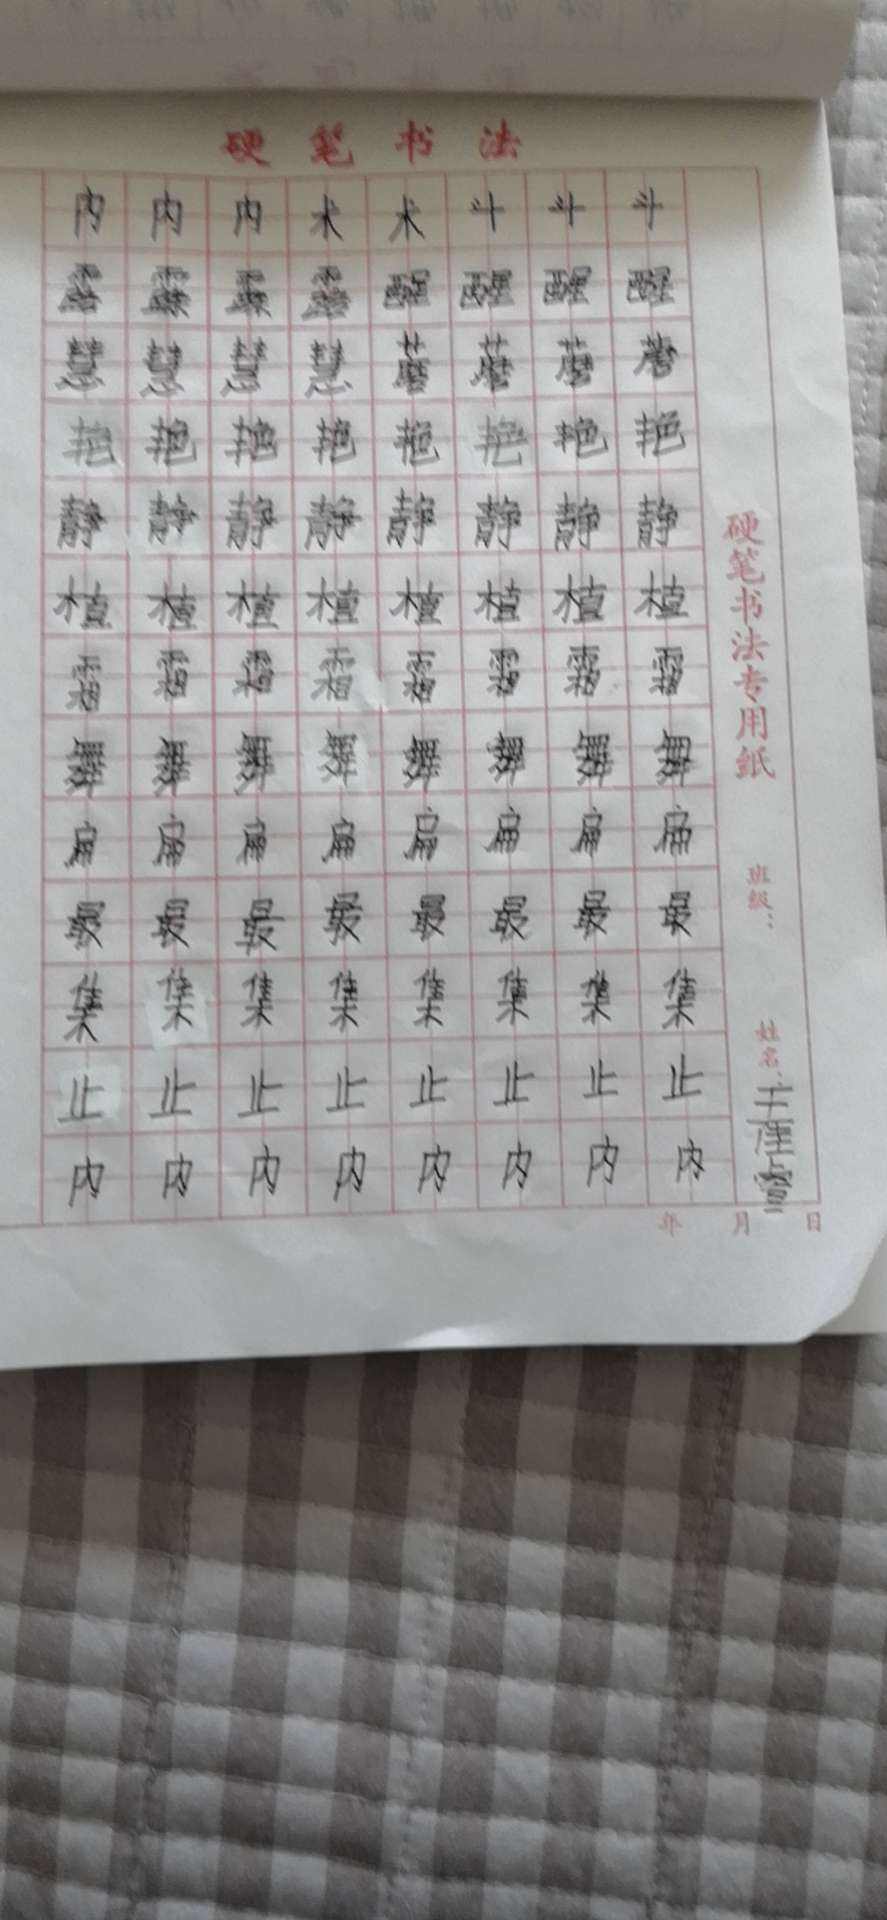 硬笔书法
内内内术术斗斗斗
露露露露醒醒醒醒
慧慧慧慧蘑蘑蘑蘑
艳艳艳艳艳艳艳艳
静静静静静静静静
植植植植植植植植
霜霜霜霜霜霜霜霜
舞舞舞舞舞舞舞舞
扁扁扁扁扁扁扁扁
最最最最最最最最
集集集集集集集集
止止止止止止止止
内内内内内内内内
硬笔书法专用纸
班级：
姓名：王
年 月 日